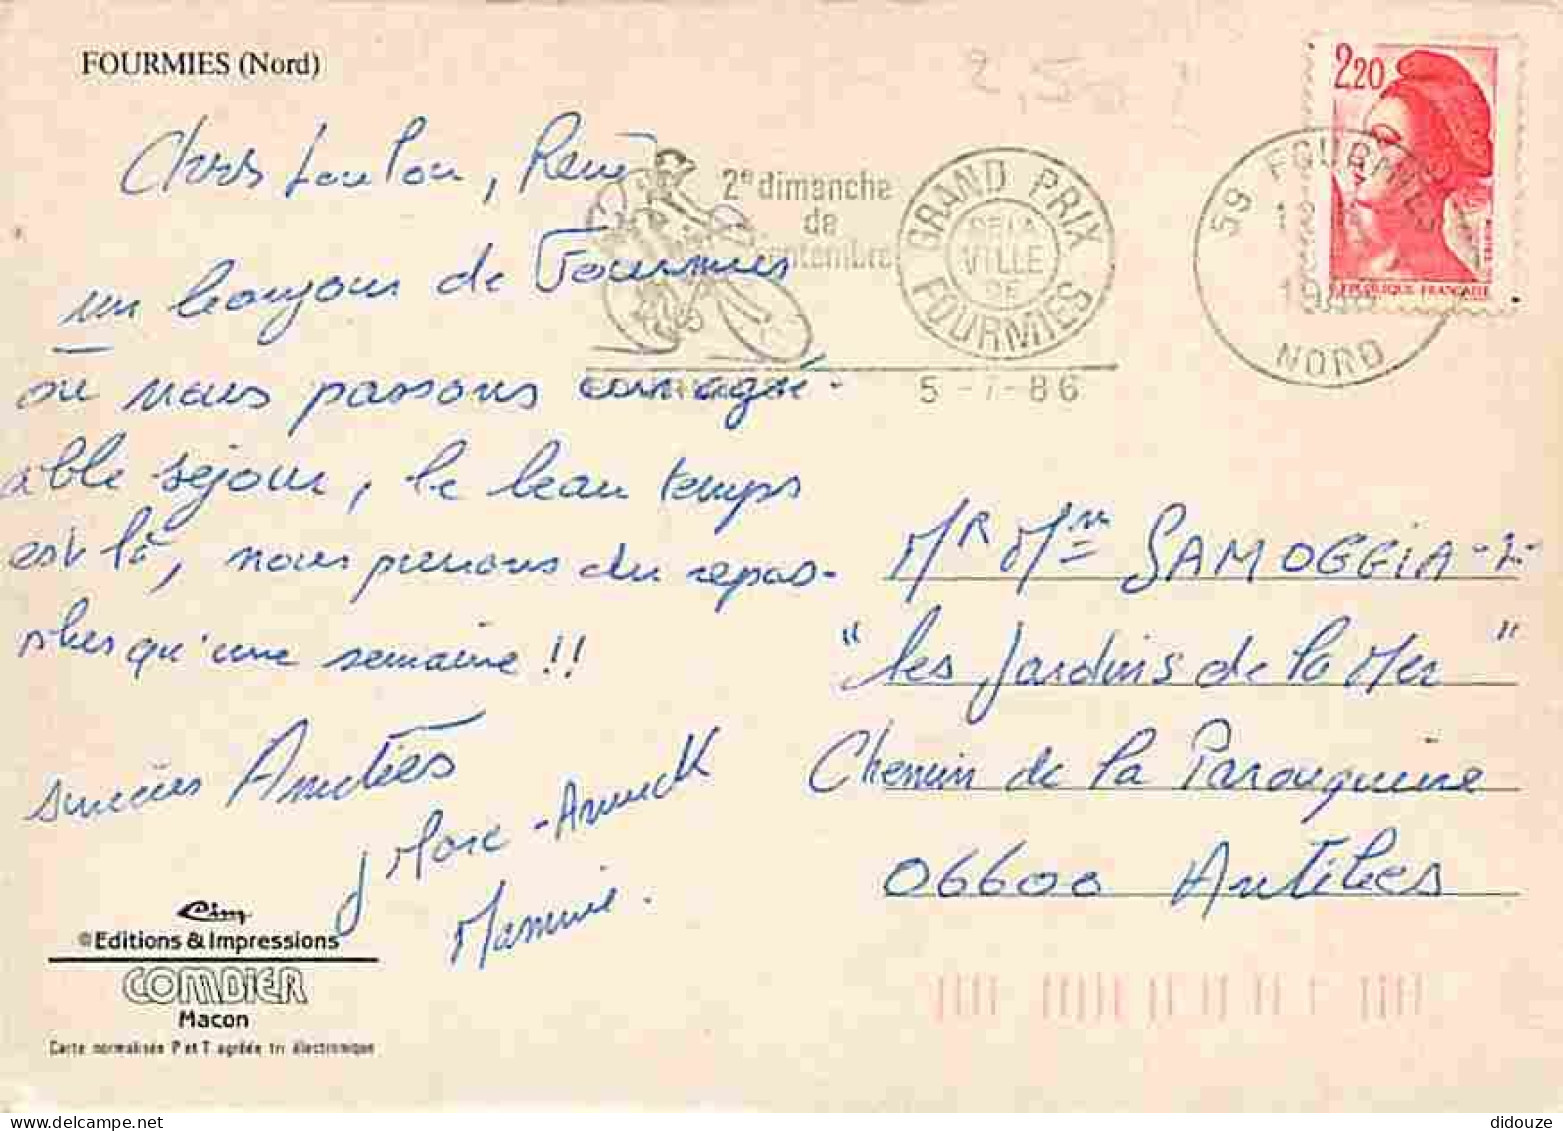 FOURMIES (Nord)
2,50
2,20
RÉPUBLIQUE FRANÇAISE
Chers Loulou, René
un bonjour de Fourmies
où nous passons un agré-
able séjour, le beau temps
est là, nous prenons du repos
qu'une semaine !!
Amitiés
Marc - Annick
Mammie.
2e dimanche
de
septembre
GRAND PRIX
DE LA
VILLE
DE
FOURMIES
5-7-86
59 FOURMIES
NORD
Mr Mme SAMOGGIA - L-
"les Jardins de la Mer"
Chemin de la Parouquine
06600 Antibes
Cim
©Editions & Impressions
COMBIER
Macon
Carte normalisée P et T agréée tri électronique
didouze